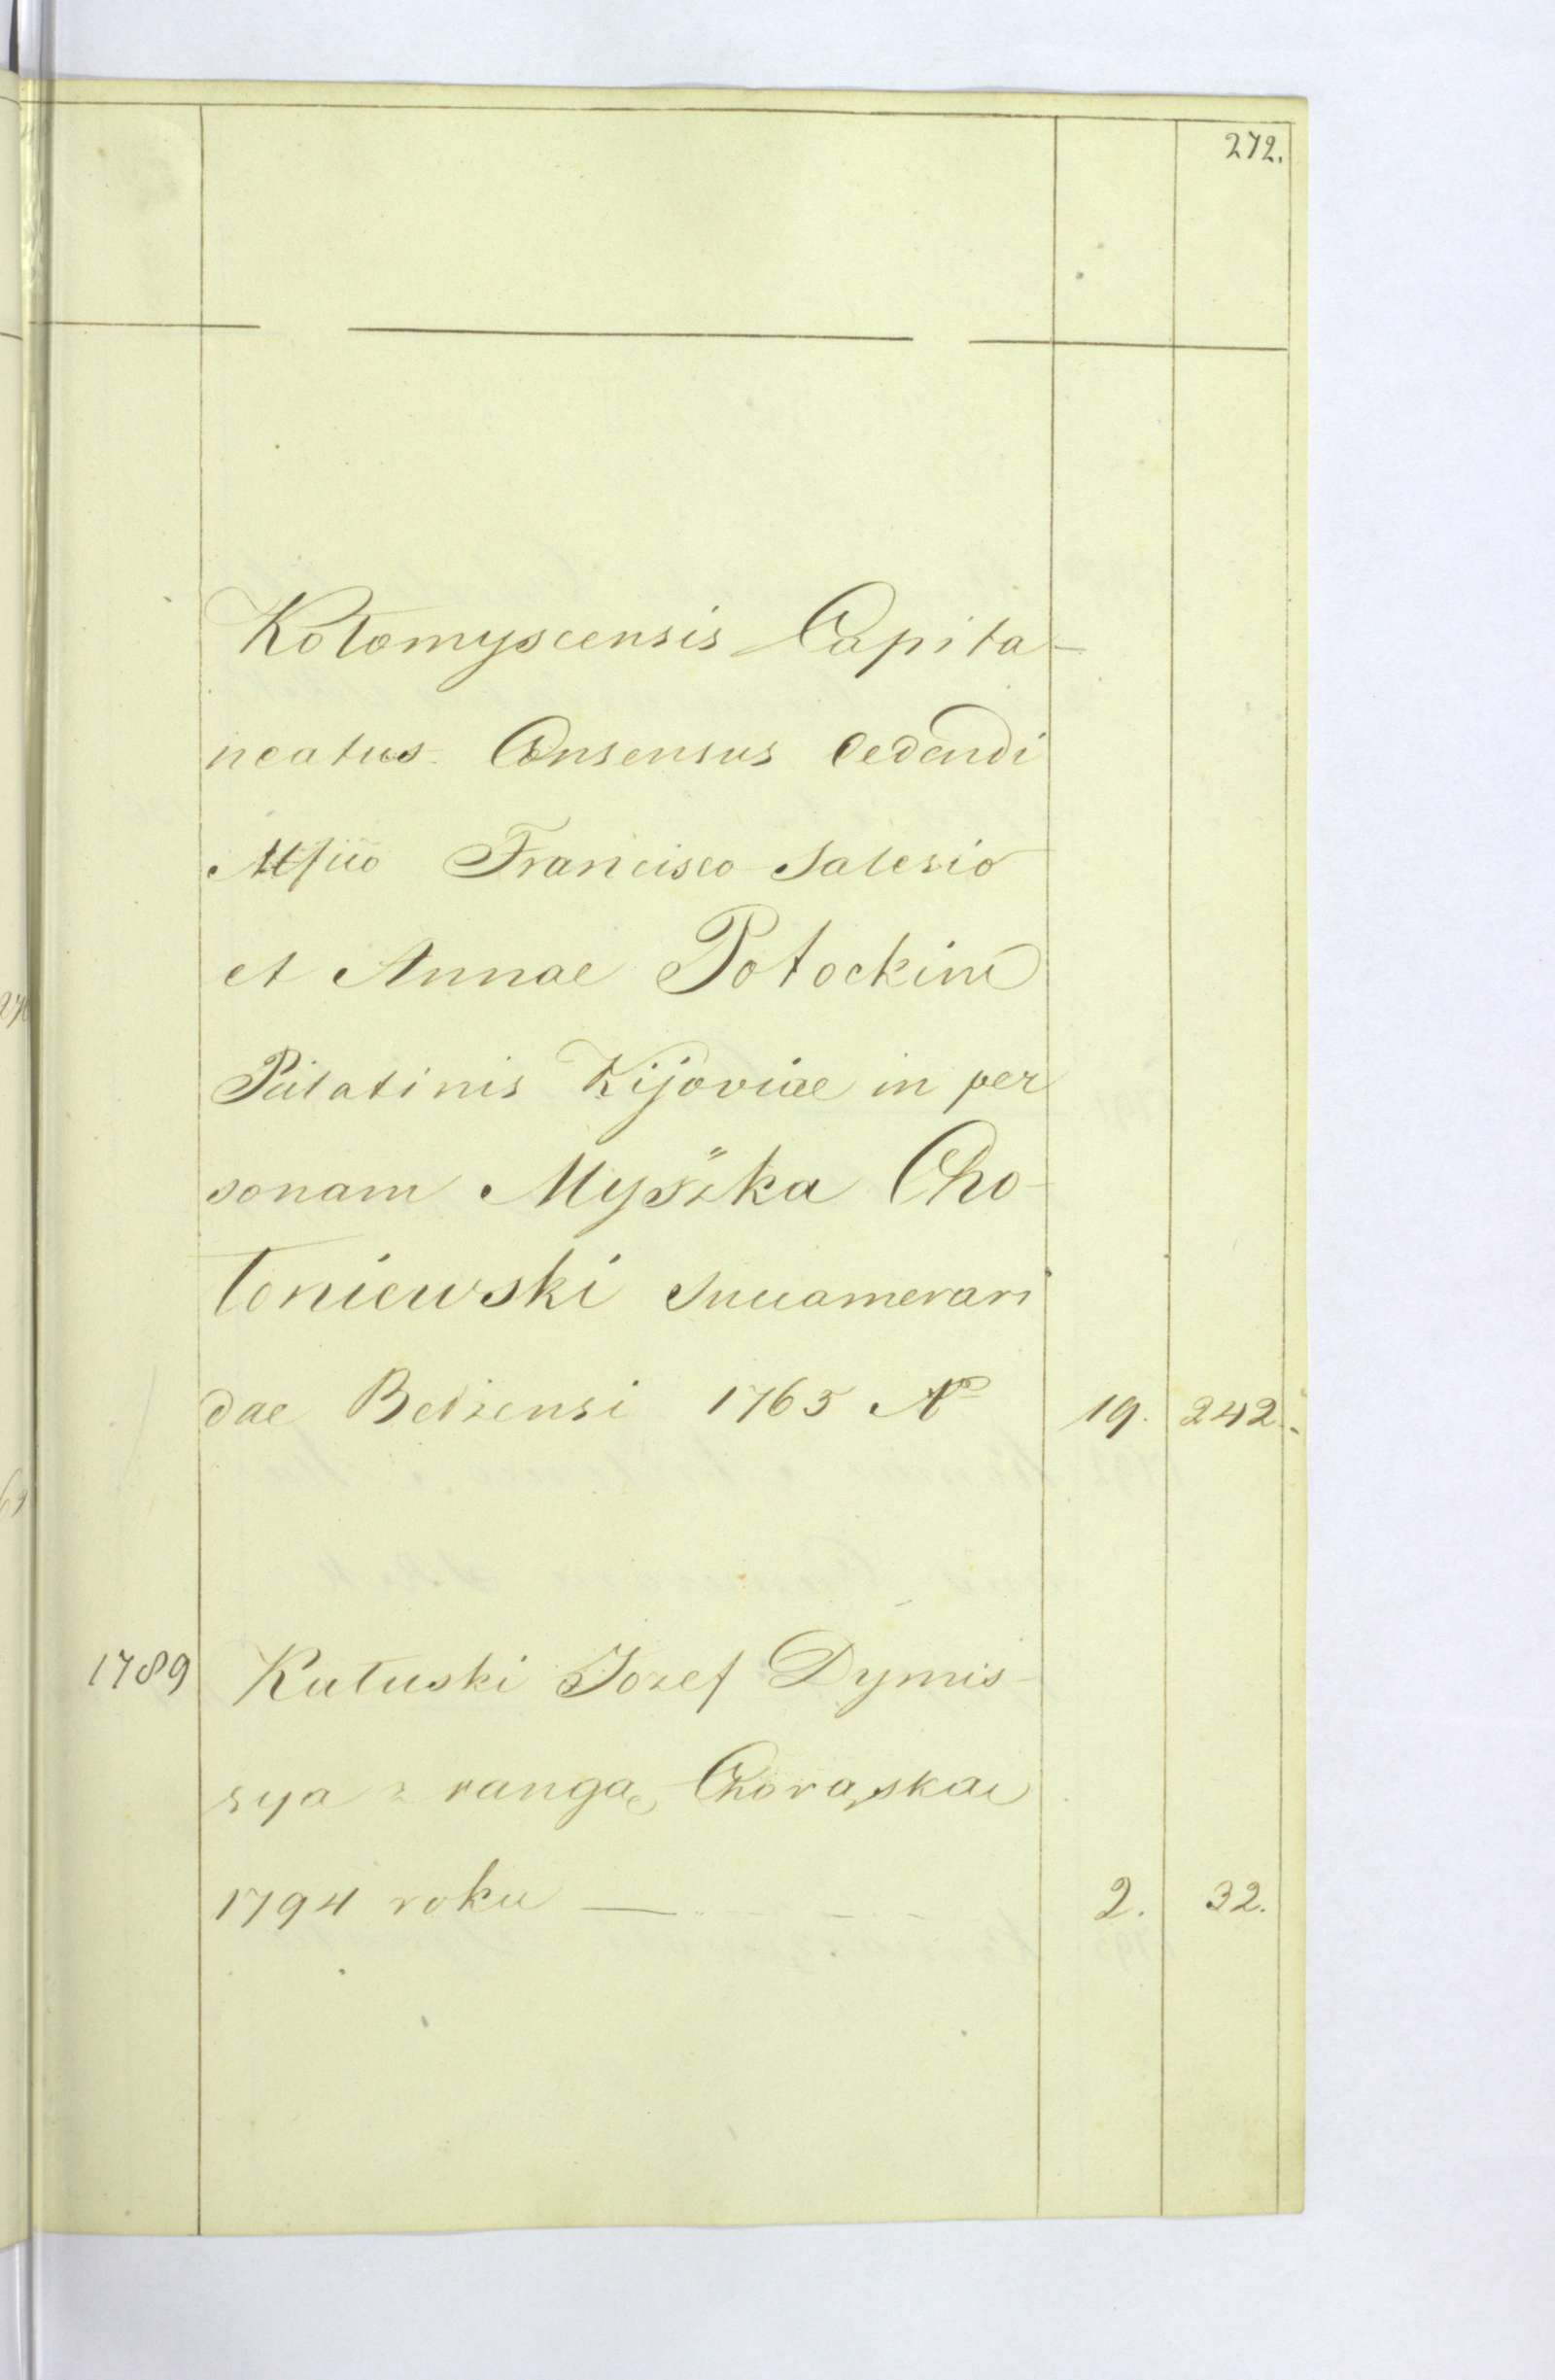 272.
Kołomyscensis Capita-
neatus Consensus Cedendi
Francisco Salesio
et Annae Potockim
Palatinis Kijoviae in per
sonam Myszka Cho-
łoniewski Succamerari
dae Betzensi 1765 Ao 19. 242.
1789 Kułuski Jozef Dymis-
sya z rangą Chorąską
1794 roku — 2. 32.